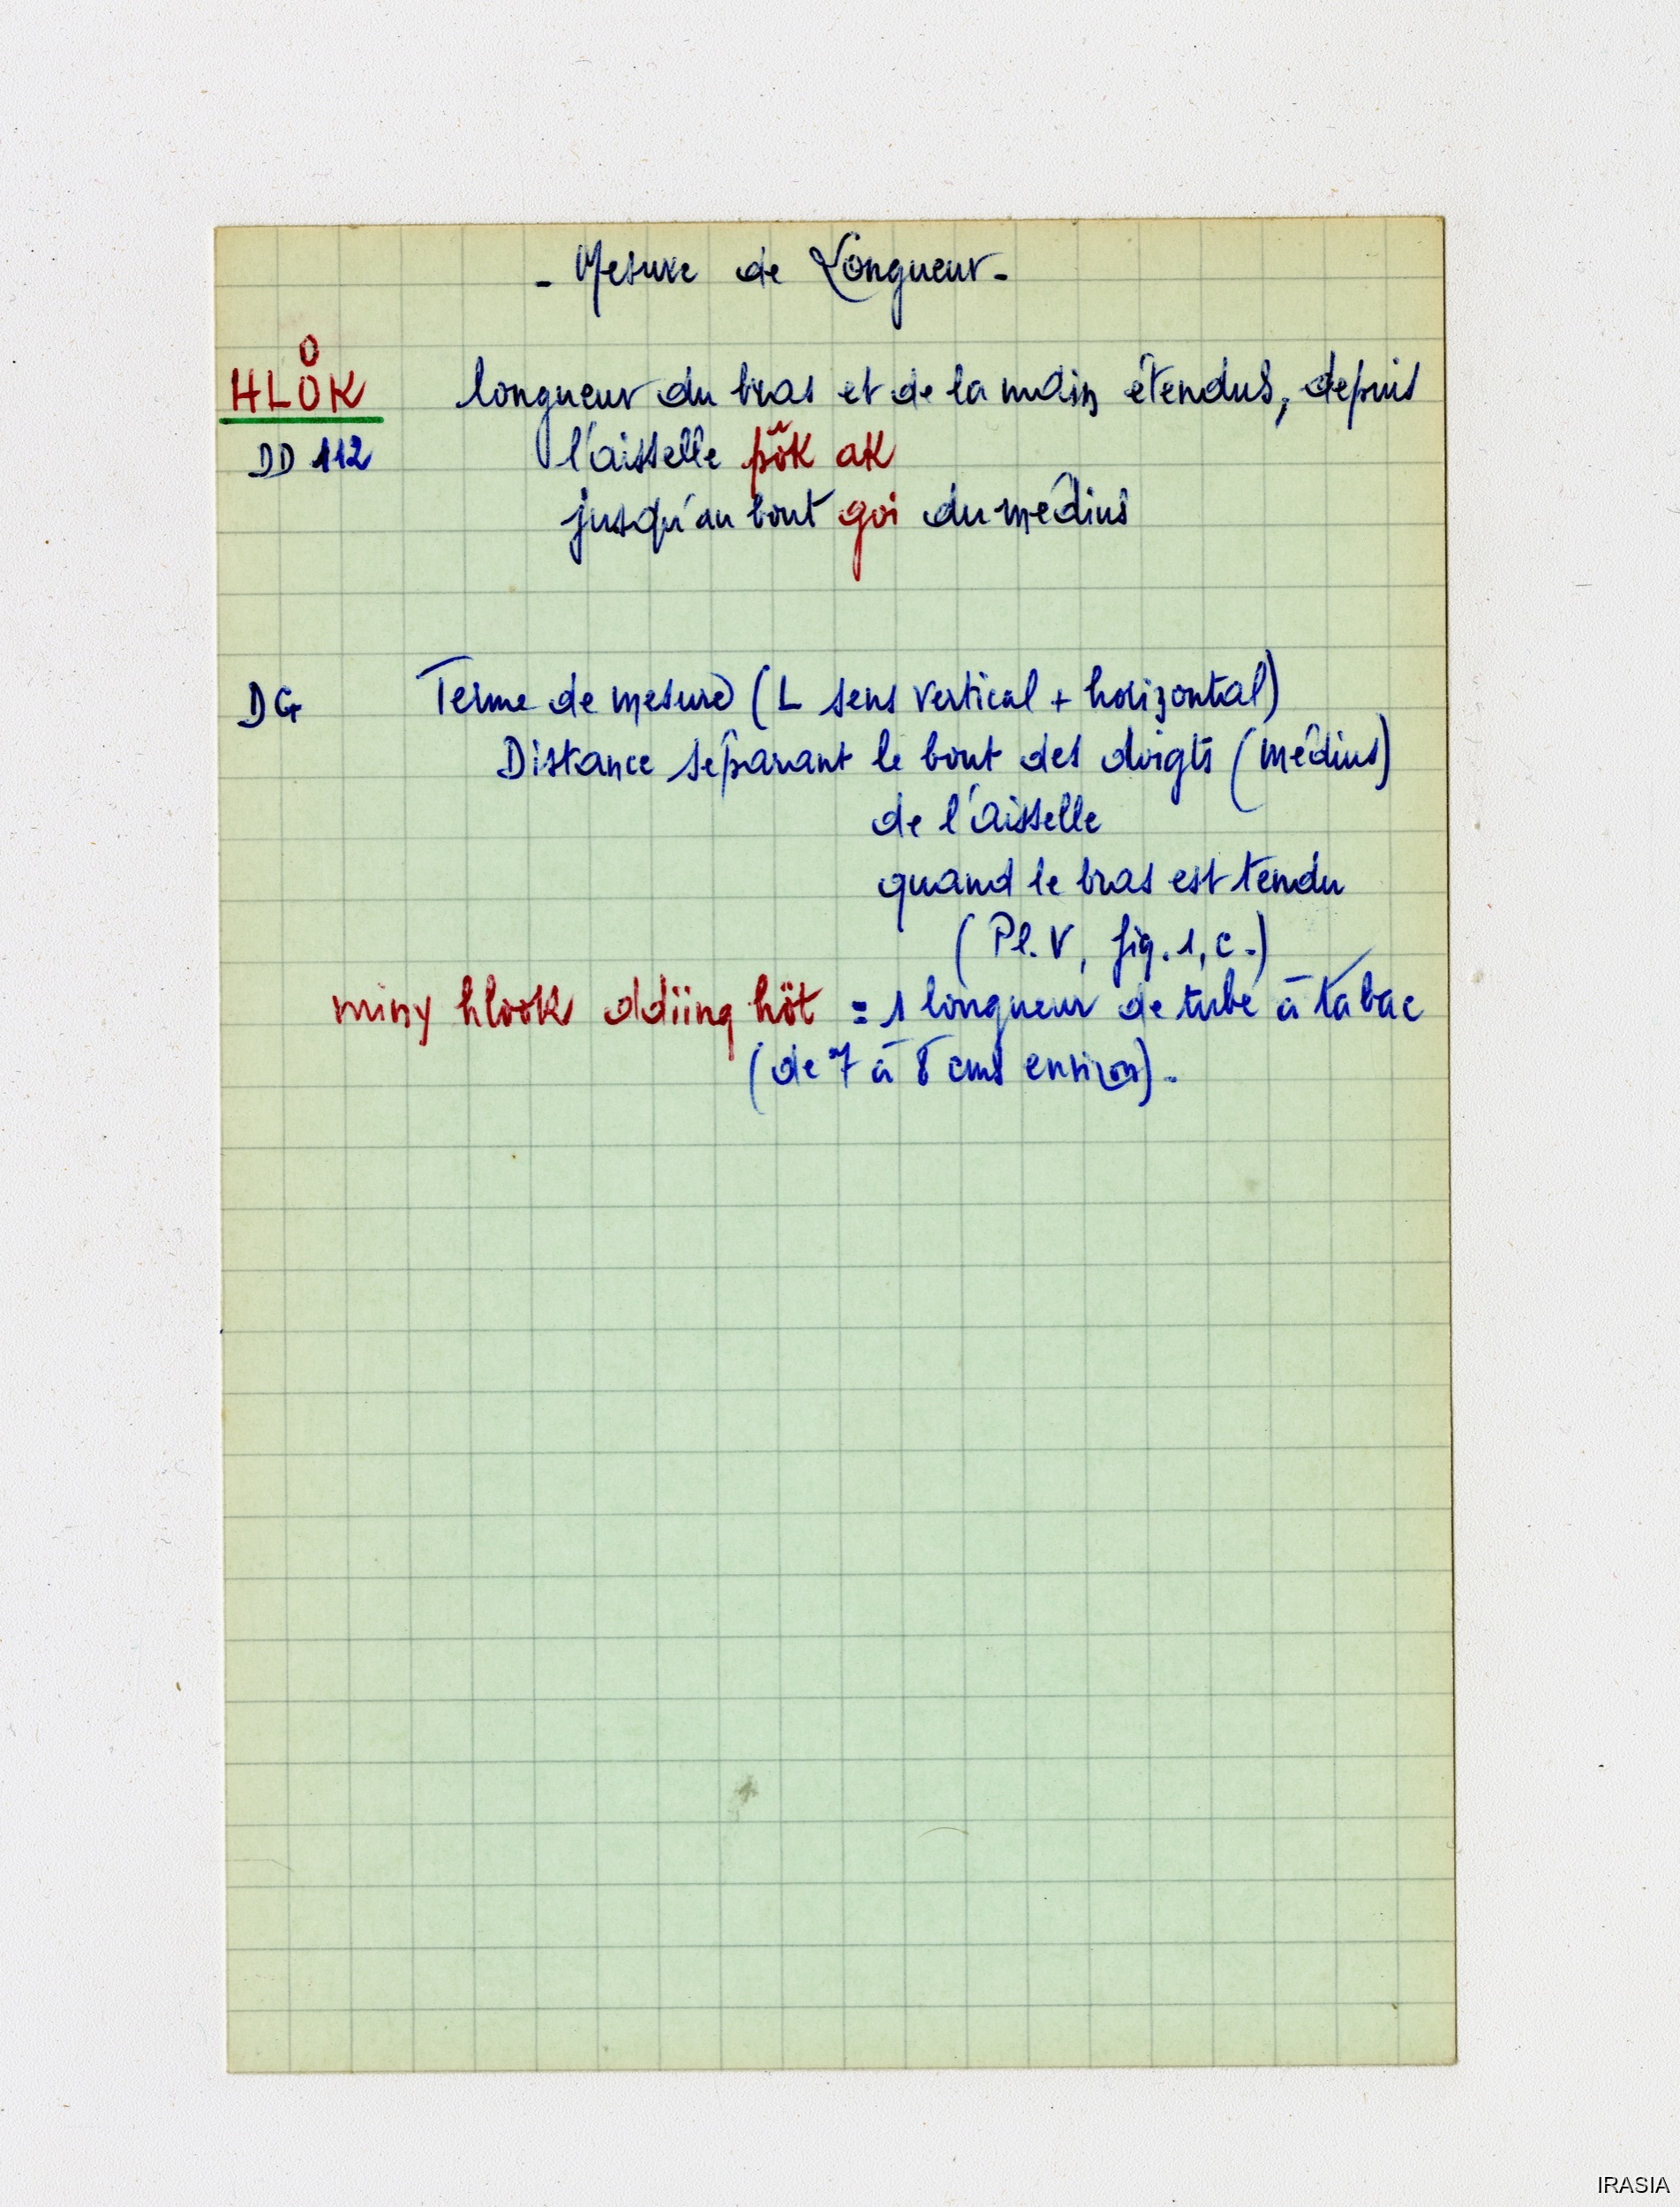 - Mesure de Longueur -
O
HLOK longueur du bras et de la main étendus, depuis
DD 112 l'aisselle pŏk ak
jusqu'au bout goi du médius
DG Terme de mesure (L sens vertical + horizontal)
Distance séparant le bout des doigts (médius)
de l'aisselle
quand le bras est tendu
(Pl. V, fig. 1, c.)
miny hlook ddiing höt = 1 longueur de tube à tabac
(de 7 à 8 cms environ).
IRASIA